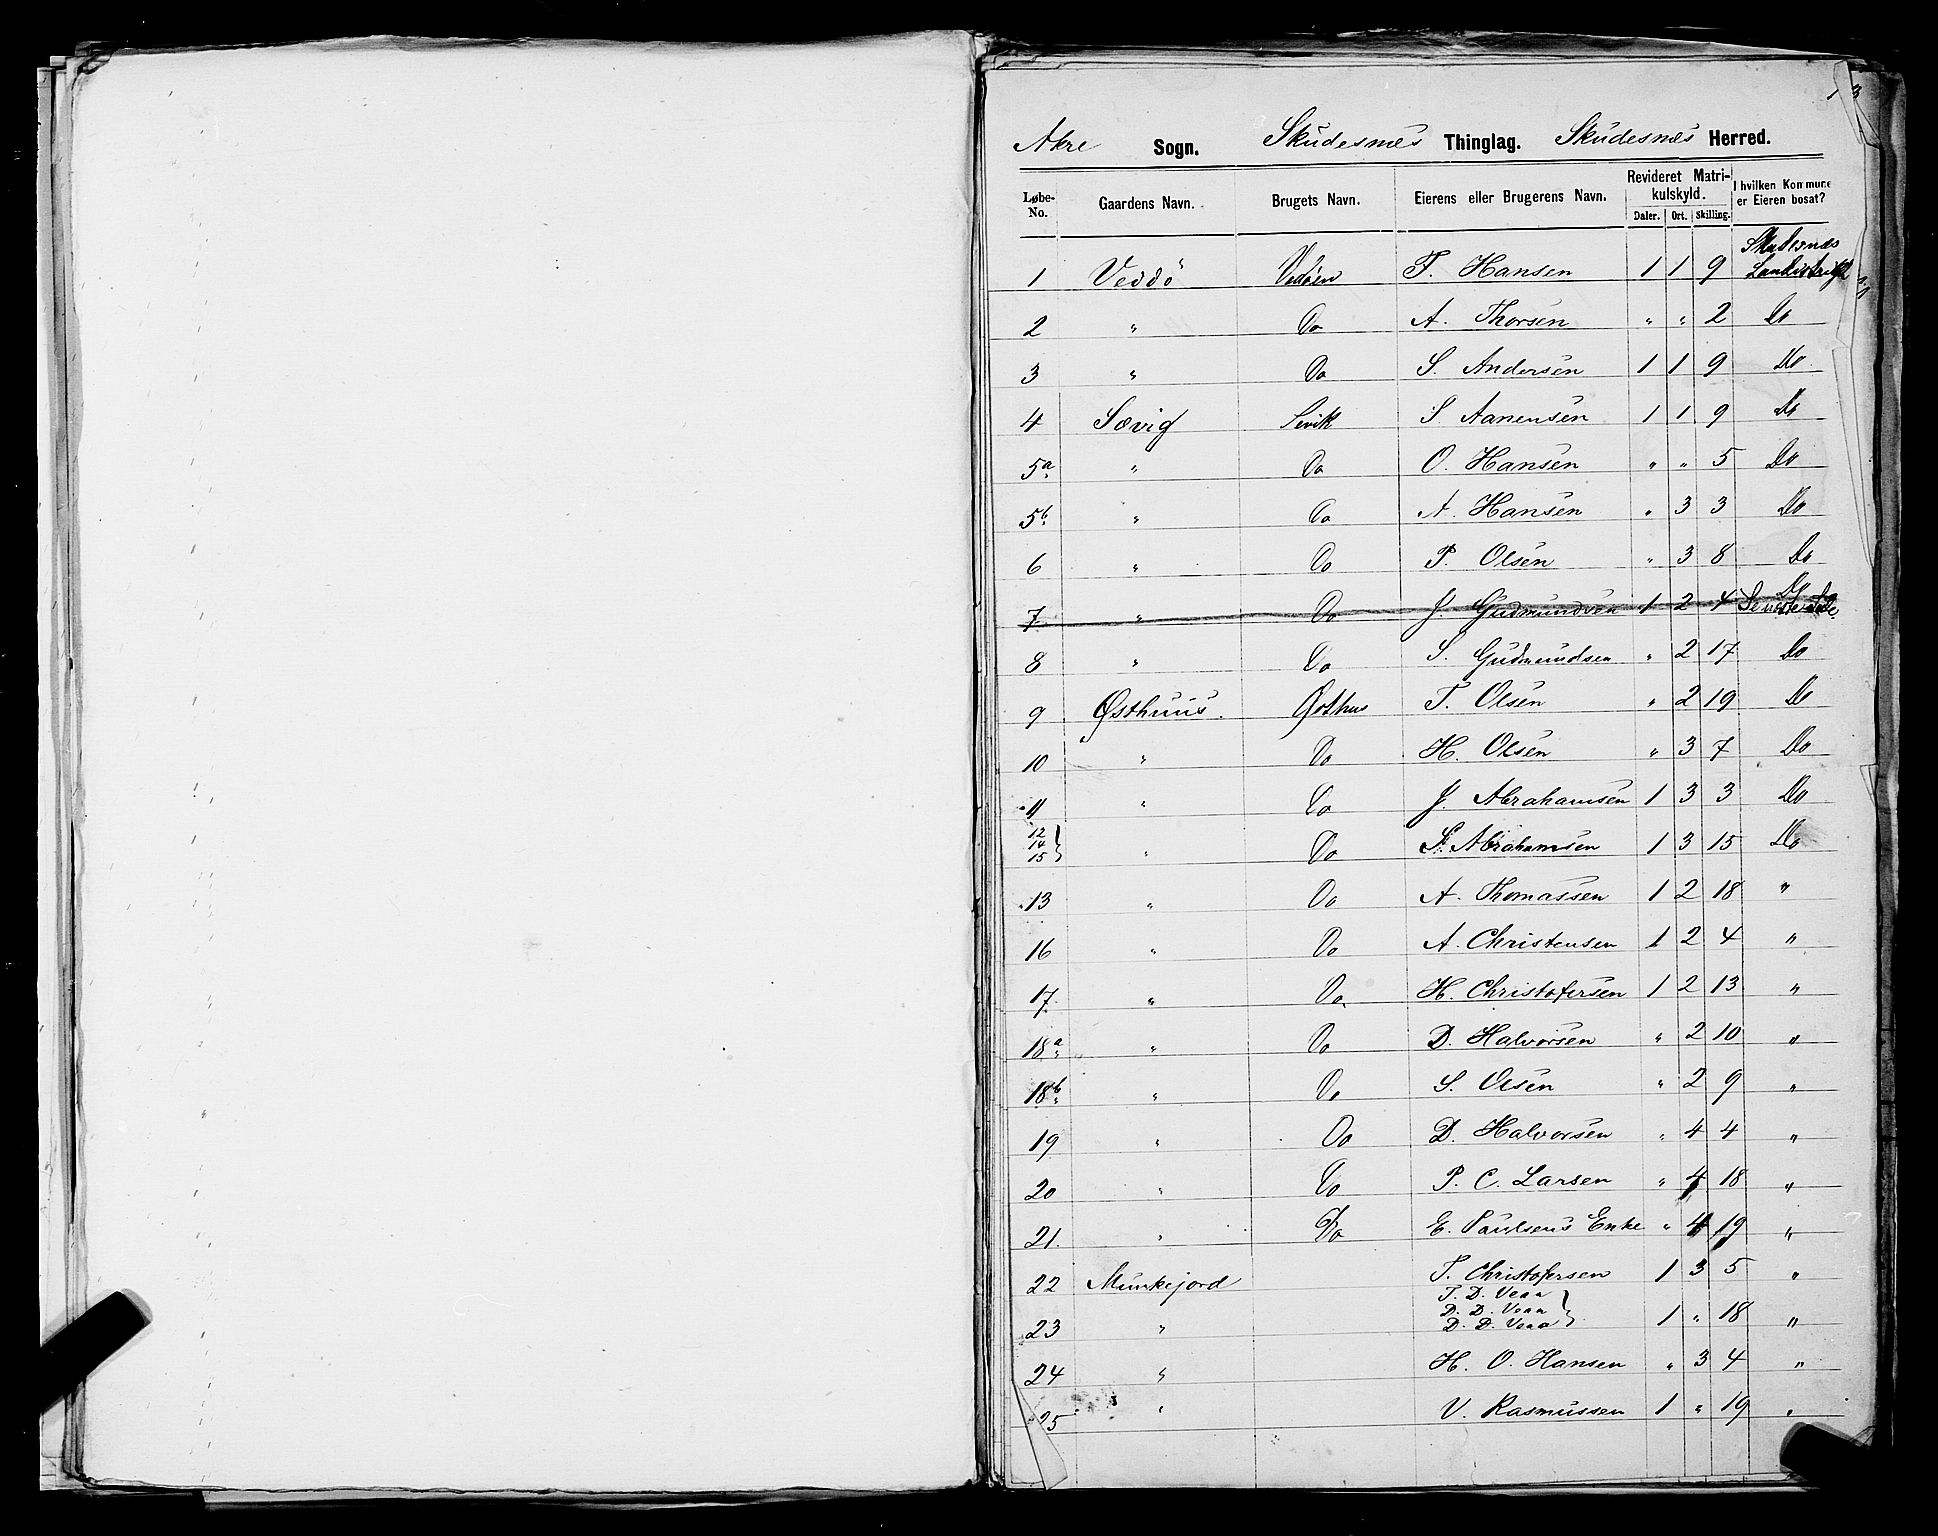 13
Akre Sogn. Skudesnæs Thinglag. Skudesnæs Herred.
Løbe-No. Gaardens Navn. Brugets Navn. Eierens eller Brugerens Navn. Revideret Matrikulskyld. Daler. Ort. Skilling. I hvilken Kommune er Eieren bosat?
1 Veddö Vedöen T. Hansen 1 1 9 Skudesnæs Landdistrigt
2 " Do A. Thorsen " " 2 Do
3 " Do S. Andersen 1 1 9 Do
4 Sævig Sevik S Aanensen 1 1 9 Do
5a " Do O. Hansen " " 5 Do
5b " Do A. Hansen " 3 3 Do
6 " Do P. Olsen " 3 8 Do
7 " Do J. Gudmundsen 1 2 4 Do
8 " Do S. Gudmundsen " 2 17 Do
9 Østhuus. Østhus T. Olsen " 2 19 Do
10 " Do H. Olsen " 3 7 Do
11 " Do J. Abrahamsen 1 3 3 Do
12 14 15 } " Do S. Abrahamsen 1 3 15 Do
13 " Do A. Thomassen 1 2 18 "
16 " Do A. Christensen 1 2 4 "
17 " Do H. Christofersen 1 2 13 "
18a " Do D. Halvorsen " 2 10 "
18b " Do S. Olsen " 2 9 "
19 " Do D. Halvorsen " 4 4 "
20 " Do P. C. Larsen " 4 18 "
21. " Do E. Paulsens Enke " 4 19 "
22 Munkejord T. Christofersen 1 3 5 "
23 " T. D. Veaa D. D. Veaa D. D. Veaa } 1 " 18 "
24 " H. O. Hansen " 3 4 "
25 " V. Rasmussen 1 " 19 "